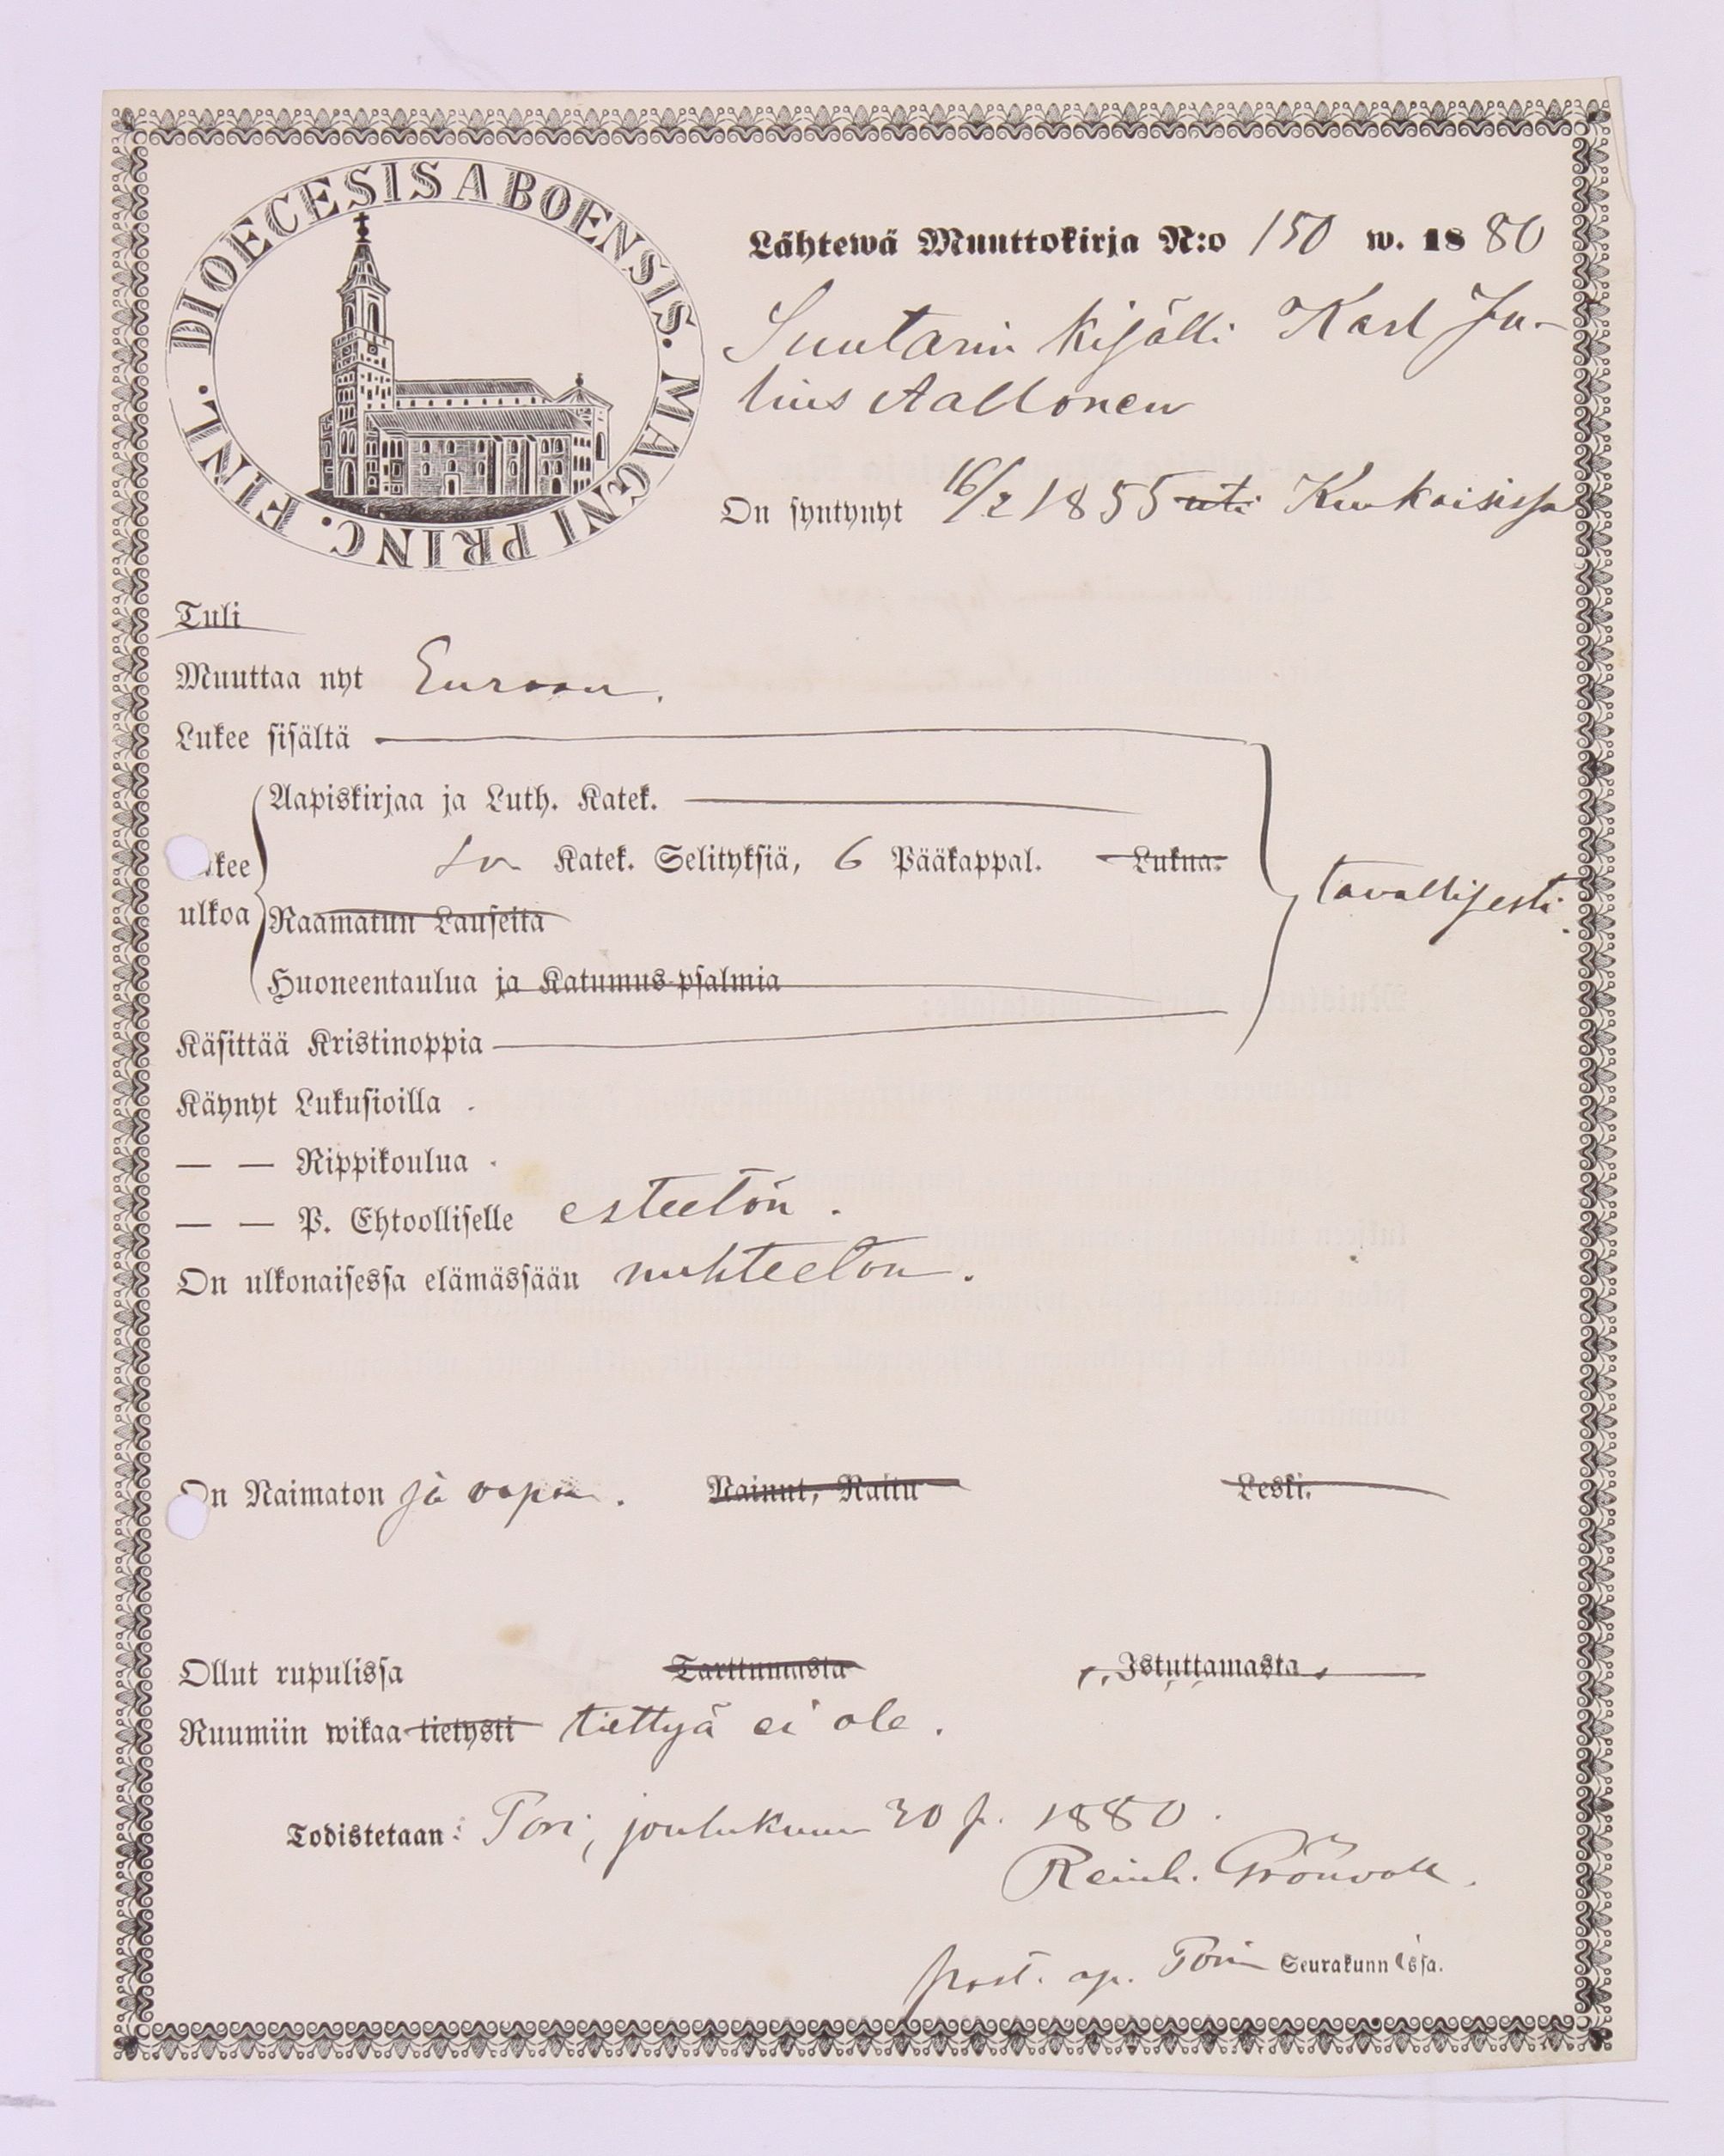 DIOECESIS ABOENSIS. MAGNI PRINC. FINL.
Lähtewä Muuttokirja N:o 150 w. 1880
Suutarin kisälli Karl Ju-
lius Aaltonen
On syntynyt 16/2 1855 uti Kiukaisissa
Tuli
Muuttaa nyt Euraan.
Lukee sisältä
Aapiskirjaa ja Luth. Katek.
kee Katek. Selityksiä, 6 Pääkappal. Lukua.
tavallisesti.
ulkoa Raamatun Lauseita
Huoneentaulua ja Katumus-psalmia
Käsittää Kristinoppia
Käynyt Lukusioilla
— — Rippikoulua
— — P. Ehtoolliselle esteetön.
On ulkonaisessa elämässään nuhteeton.
On Naimaton ja vapaa. Nainut, Raitu Leski.
Ollut rupulissa Tarttumasta Istuttamasta
Ruumiin wikaa tietysti tiettyä ei ole.
Todistetaan: Pori, joulukuun 30 p. 1880.
Reinh. Grönvall.
past. ap. Porin Seurakunnissa.